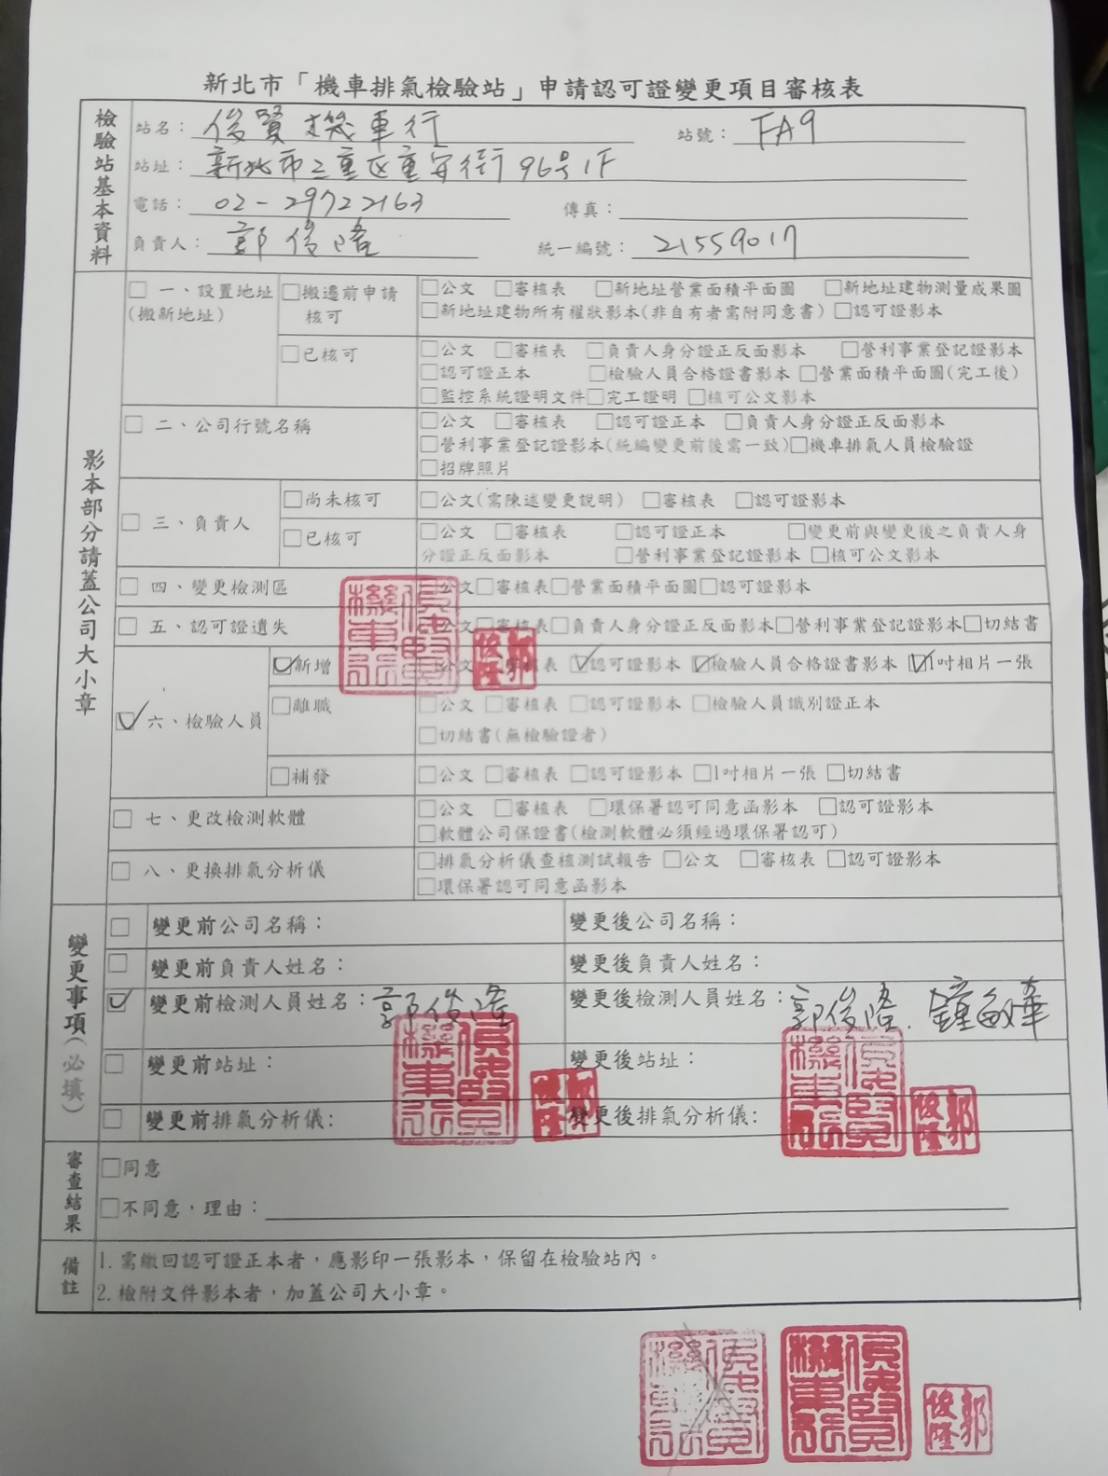 新北市「機車排氣檢驗站」申請認可證變更項目審核表
檢驗站基本資料
站名：俊賢機車行 站號：FA9
站址：新北市三重區重安街96号1F
電話：02-29722163 傳真：
負責人：郭俊隆 統一編號：21559017
影本部分請蓋公司大小章
□ 一、設置地址(搬新地址)
□搬遷前申請核可
□公文 □審核表 □新地址營業面積平面圖 □新地址建物測量成果圖
□新地址建物所有權狀影本(非自有者需附同意書) □認可證影本
□已核可
□公文 □審核表 □負責人身分證正反面影本 □營利事業登記證影本
□認可證正本 □檢驗人員合格證書影本 □營業面積平面圖(完工後)
□監控系統證明文件□完工證明 □核可公文影本
□ 二、公司行號名稱
□公文 □審核表 □認可證正本 □負責人身分證正反面影本
□營利事業登記證影本(統編變更前後需一致)□機車排氣人員檢驗證
□招牌照片
□ 三、負責人
□尚未核可 □公文(需陳述變更說明) □審核表 □認可證影本
□已核可
□公文 □審核表 □認可證正本 □變更前與變更後之負責人身
分證正反面影本 □營利事業登記證影本 □核可公文影本
□ 四、變更檢測區 □公文□審核表□營業面積平面圖□認可證影本
□ 五、認可證遺失 公文□審核表□負責人身分證正反面影本□營利事業登記證影本□切結書
☑ 六、檢驗人員
☑新增 公文 審核表 ☑認可證影本 ☑檢驗人員合格證書影本 ☑1吋相片一張
□離職 □公文 □審核表 □認可證影本 □檢驗人員識別證正本
□切結書(無檢驗證者)
□補發 □公文 □審核表 □認可證影本 □1吋相片一張 □切結書
□ 七、更改檢測軟體
□公文 □審核表 □環保署認可同意函影本 □認可證影本
□軟體公司保證書(檢測軟體必須經過環保署認可)
□ 八、更換排氣分析儀
□排氣分析儀查核測試報告 □公文 □審核表 □認可證影本
□環保署認可同意函影本
變更事項(必填)
□ 變更前公司名稱： 變更後公司名稱：
□ 變更前負責人姓名： 變更後負責人姓名：
☑ 變更前檢測人員姓名：郭俊隆 變更後檢測人員姓名：郭俊隆、鐘敏華
□ 變更前站址： 變更後站址：
□ 變更前排氣分析儀: 變更後排氣分析儀:
審查結果
□同意
□不同意，理由：
備註
1.需繳回認可證正本者，應影印一張影本，保留在檢驗站內。
2.檢附文件影本者，加蓋公司大小章。
俊賢機車行
郭俊隆
俊賢機車行
郭俊隆
俊賢機車行
郭俊隆
俊賢機車行
俊賢機車行
郭俊隆